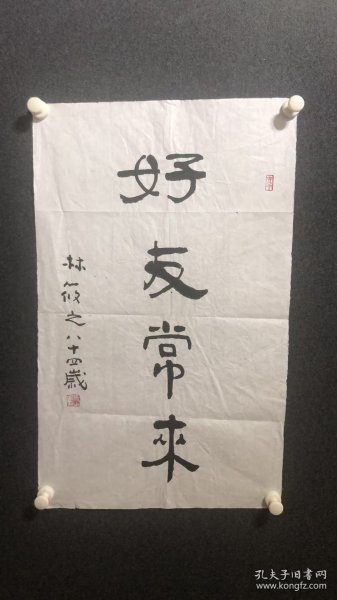 好友常來
林筱之八十四歲
孔夫子旧书网
www.kongfz.com